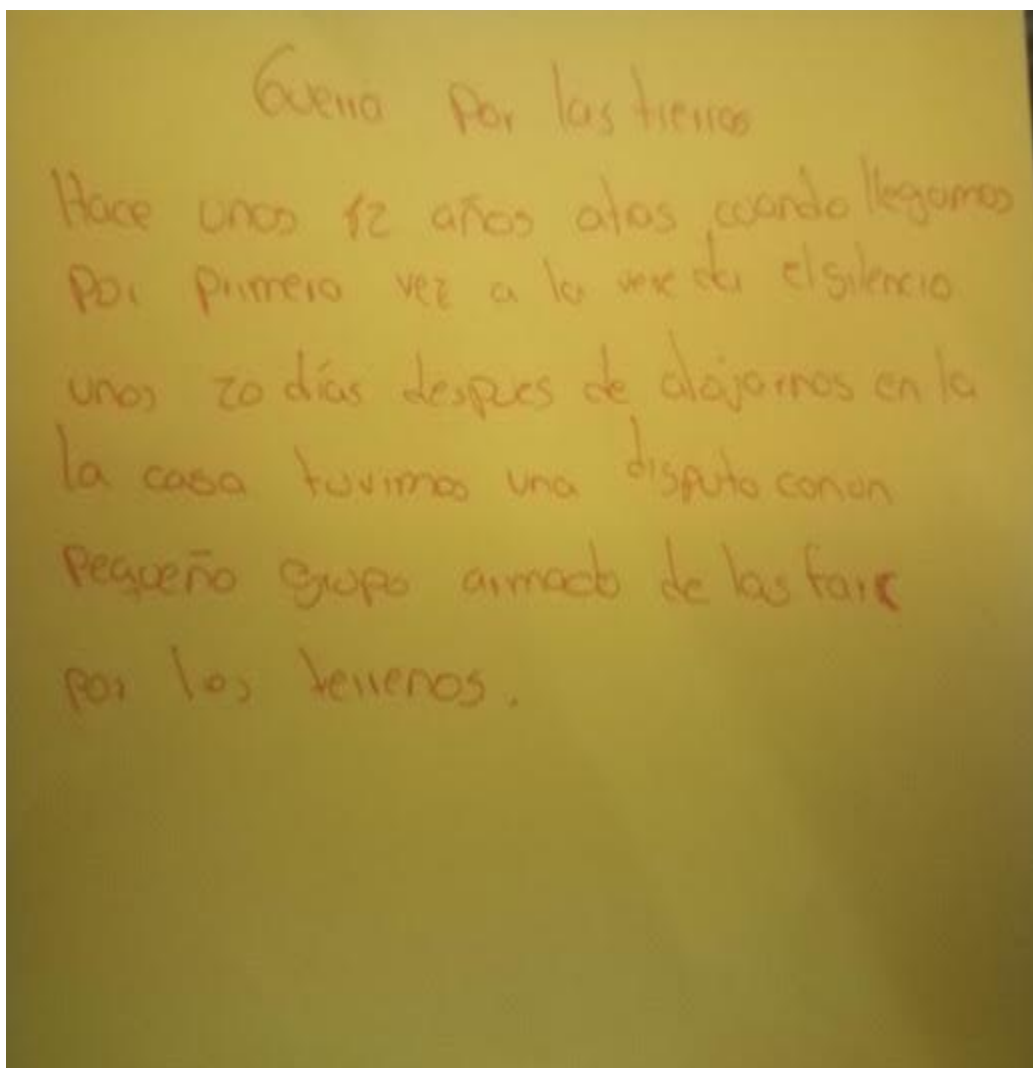 Guerra por las tierras
Hace unos 12 años atas cuando llegamos
Por Primera vez a la vereda el silencio
unos 20 días despues de alojarnos en la
la casa tuvimos una disputa con un
Pequeño grupo armado de las farc
por los terrenos.